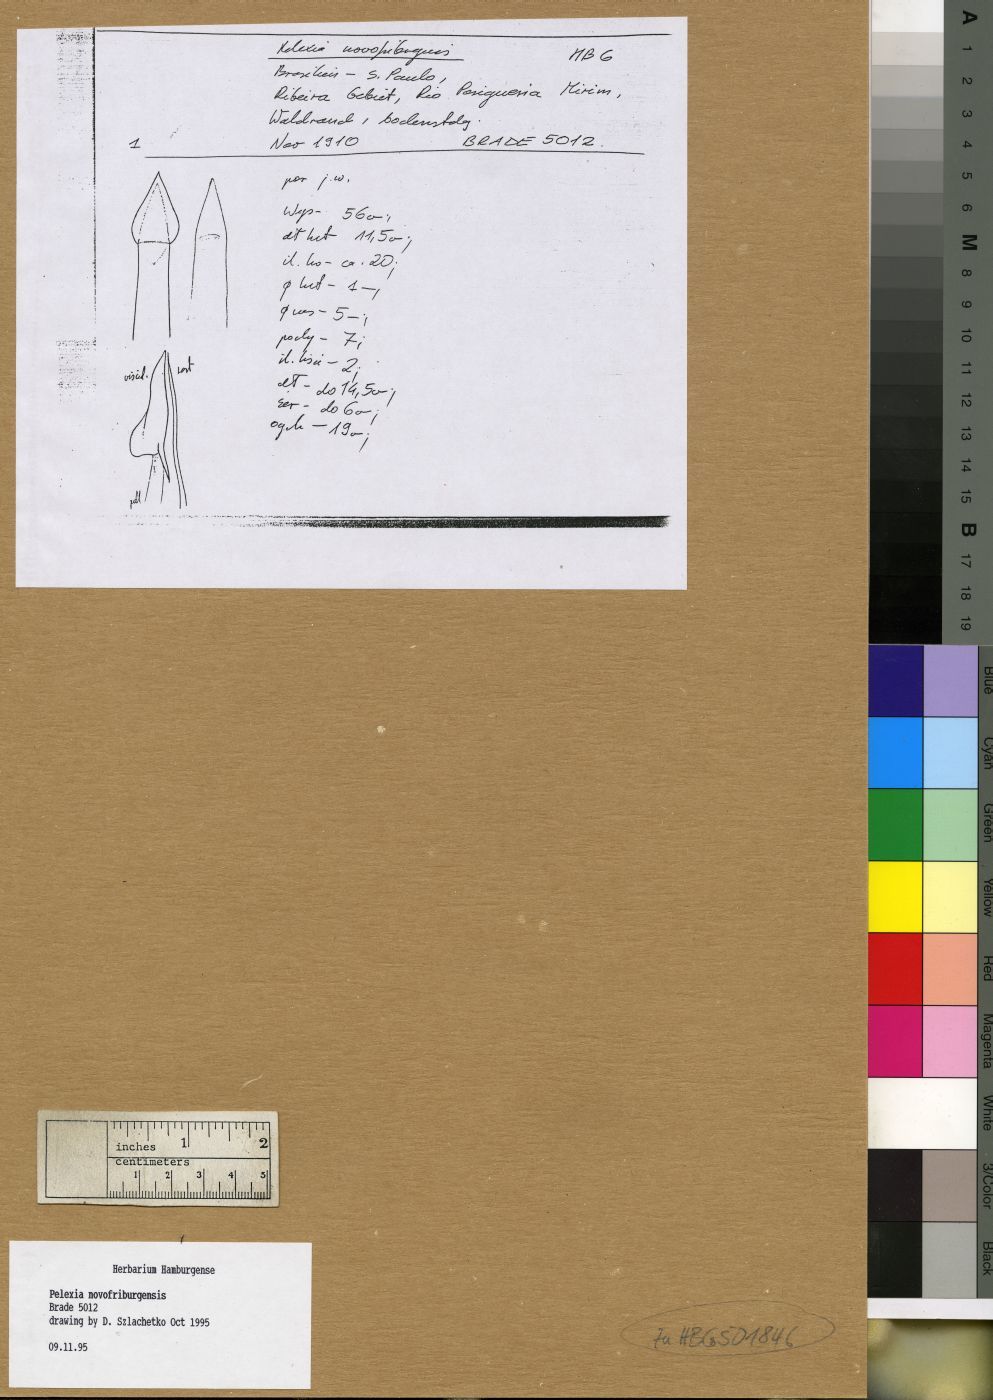 Pelexia novofriburgensis
HBG
Brasilien - S. Paulo,
Ribeira Gebiet, Rio Pariquera Mirim,
Waldrand, bodenstdg.
1 Nov 1910 BRADE 5012.
por j.w.
Wys- 56
dł kwt 11,5
il. kw- ca. 20;
φ kwt - 1
5
pochy - 7;
il. liści - 2;
dł - do 14,5
szer - do 6
ogck - 19
viscid. rost
inches 1 2
centimeters
1 2 3 4 5
Herbarium Hamburgense
Pelexia novofriburgensis
Brade 5012
drawing by D. Szlachetko Oct 1995
09.11.95
Zu HBG 501846
A 1 2 3 4 5 6 M 8 9 10 11 12 13 14 15 B 17 18 19
Blue
Cyan
Green
Yellow
Red
Magenta
White
3/Color
Black